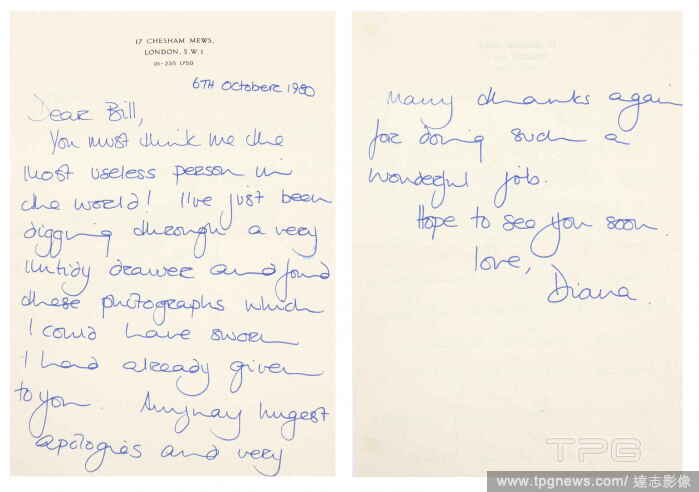 17 CHESHAM MEWS,
LONDON, S.W.1
01-235 1750
6TH October 1980
Dear Bill,
You must think me the
most useless person in
the world! I've just been
digging through a very
untidy drawer and found
these photographs which
I could have sworn
I had already given
to you. Anyway hugest
apologies and very
many thanks again
for doing such a
wonderful job.
Hope to see you soon.
love,
Diana.
TPG
www.tpgnews.com/ 達志影像